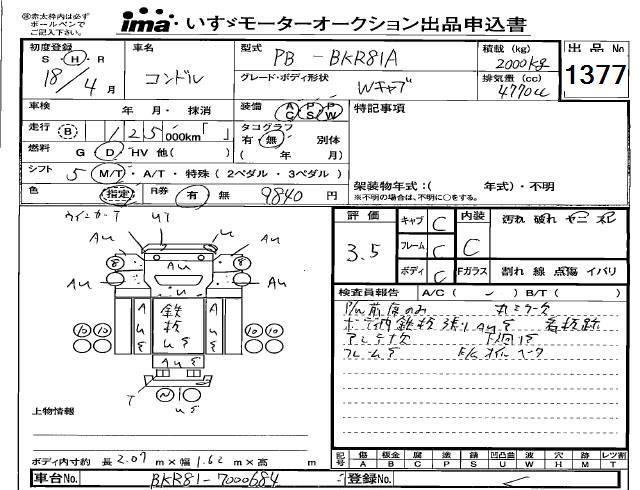 ※赤太枠内は必ず
ボールペンで
ご記入下さい。
ima いすゞモーターオークション出品申込書
初度登録 S・H・R 18/4月
車名 コンドル
型式 PB-BKR81A
グレード・ボディ形状 Wキャブ
積載(kg) 2000kg
排気量(cc) 4770cc
出品No 1377
車検 年 月・抹消
装備 AC PS PW
特記事項
走行 B 125 000km「 」
タコグラフ 有・無 別体
( 年 月)
燃料 G D・HV 他( )
シフト 5 M/T・A/T・特殊(2ペダル・3ペダル)
架装物年式:( 年式)・不明
※不明の場合は、不明に○をする。
色 指定 R券 有・無 9840円
評価 3.5
キャブ C
フレーム C
ボディ C
内装 C
Fガラス
汚れ 破れ ヤニ オレ
割れ 線 点傷 イバリ
ウインカーT UT
AU U AU
8 AU 8
AU AU
U
AU 鉄板 US AU
10 10 10 10
AUS
T
US
検査員報告 A/C( ) B/T( )
P/W前席のみ
ボデー内鉄板張り AUS 看板跡
フレームS
上物情報
ボディ内寸約 長2.07m×幅1.62m×高 m
記号 傷A 板金B 腐C 塗P 錆S 凹凸曲U 波W 穴H 跡M レツ割T
車台No. BKR81-7000684
登録No.